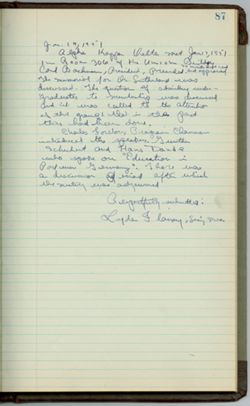 87
Jan. 17, 1951
Alpha Kappa Delta met Jan. 17, 1951
in Room 306 of the Union Bldg.
Carl Backman, President, Presided.
The memorial for Dr Sutherland was
discussed. The question of admitting under-
graduates to membership was discussed
and it was called to the attention
of the group that in the past
this had been done.
Program Chairman
introduced the speakers, Gunther
Schubert and Hans
who spoke on "Education in
Postwar Germany". There was
a discussion period after which
the meeting was adjourned
Respectfully submitted,